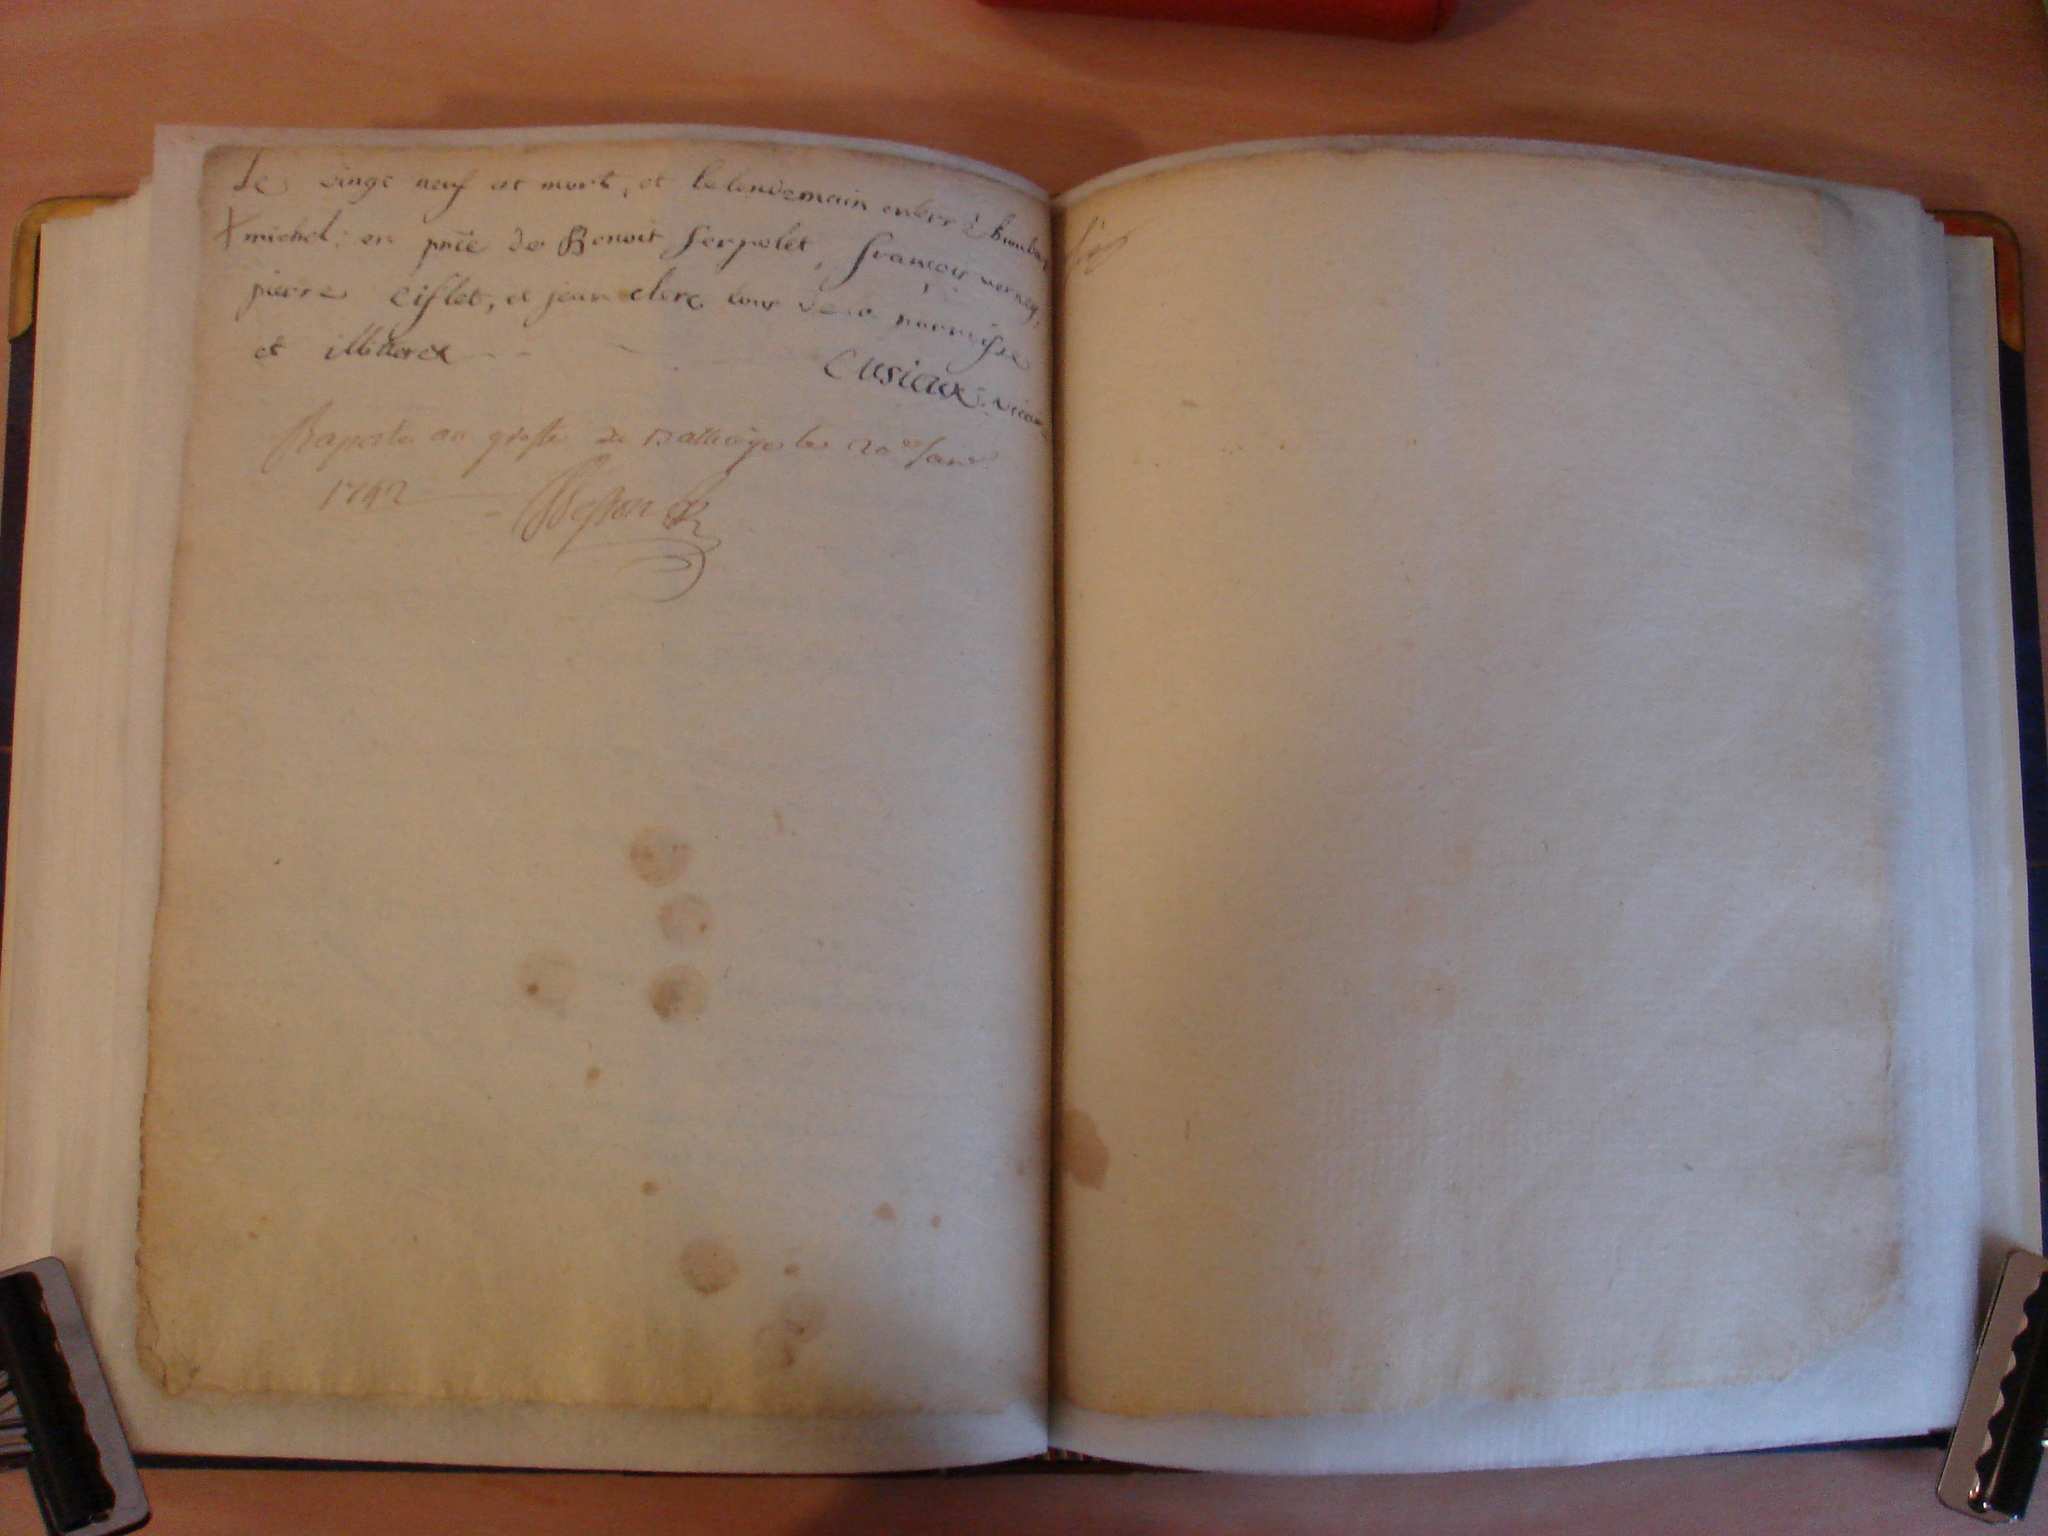 Le vingt neuf est mort, et le lendemain enterré
michel: en pñce de Benoit Serpolet, françois verney,
pierre Ciflet, et jean clerc tous de la parroisse
et illitterex
Cusieux: vicaire
Raporté au greffe de le 20e Janv
1742